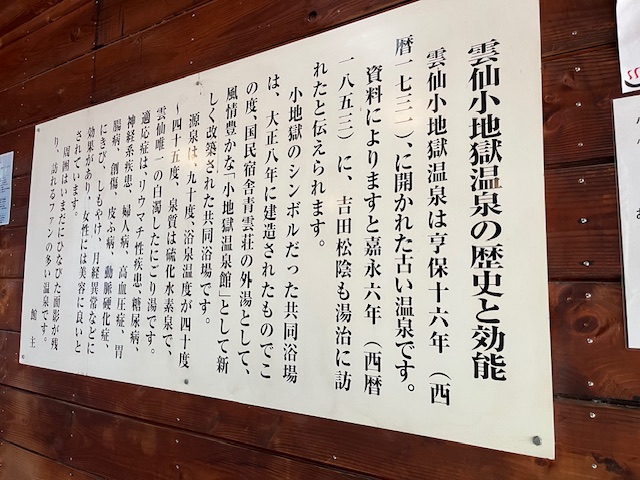 雲仙小地獄温泉の歴史と効能
雲仙小地獄温泉は亨保十六年（西
暦一七三一）、に開かれた古い温泉です。
資料によりますと嘉永六年（西暦
一八五三）に、吉田松陰も湯治に訪
れたと伝えられます。
小地獄のシンボルだった共同浴場
は、大正八年に建造されたものでこ
の度、国民宿舎青雲荘の外湯として、
風情豊かな「小地獄温泉館」として新
しく改築された共同浴場です。
源泉は、九十度、浴泉温度が四十度
～四十五度、泉質は硫化水素泉で、
雲仙唯一の白濁したにごり湯です。
適応症は、リウマチ性疾患、糖尿病、
神経系疾患、婦人病、高血圧症、胃
腸病、創傷、皮ふ病、動脈硬化症、
にきび、しもやけ、月経異常などに
効果があり、女性には美容に良いと
されています。
周囲はいまだにひなびた面影が残
り、訪れるファンの多い温泉です。
館主